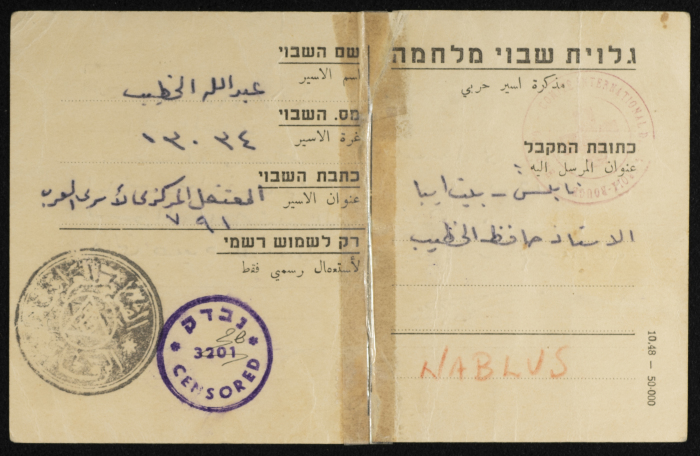 גלוית שבוי מלחמה
مذكرة اسير حربي
כתובת המקבל
عنوان المرسل اليه :
نابلس - بيت ايبا
الاستاذ حافظ الخطيب
NABLUS
10.48 — 50.000
שם השבוי
اسم الاسير
عبدالله الخطيب
מס. השבוי
نمرة الاسير
١٣٠٣٤
כתבת השבוי
عنوان الاسير
المعتقل المركزي لأسرى العرب
٧٩١
רק לשמוש רשמי
لأستعمال رسمي فقط
נבדק
3201
CENSORED